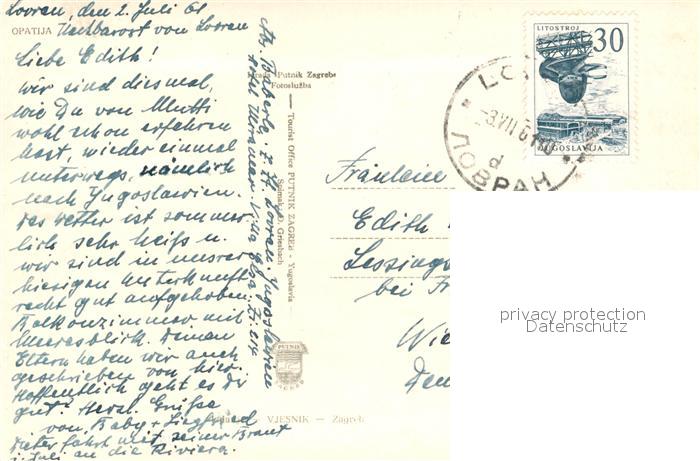 Lovran, den 2. Juli 61
OPATIJA Nachbarort von Lovran
Liebe Edith!
Wir sind diesmal,
wie Du von Mutti
wohl schon erfahren
hast, wieder einmal
unterwegs, nämlich
nach Jugoslawien.
Das Wetter ist sommer-
lich sehr heiß u.
wir sind in unsrer
hiesigen Unterkunft
recht gut aufgehoben.
Balkonzimmer mit
Meeresblick. Deinen
Eltern haben wir auch
geschrieben von hier.
Hoffentlich geht es Dir
gut? Herzl. Grüße
von Baby + Siegfried
Dieter fährt mit seiner Braut
i. Juli an die Riviera.
Z. Zt. Lovran, Jugoslawien
Hotel Miramar, Villa Elza, Zi. 214
Putnik Zagreb
Fotoslužba
Tourist Office PUTNIK ZAGREB - Yugoslavia
Snimak: D. Griesbach
PUTNIK
ZAGREB
VJESNIK — Zagreb
LITOSTROJ
30
JUGOSLAVIJA
LO
-3.VII 61-10
d
ЛОВРАН
Fräulein
Edith
Lessing
bei Fr
Wie
privacy protection
Datenschutz